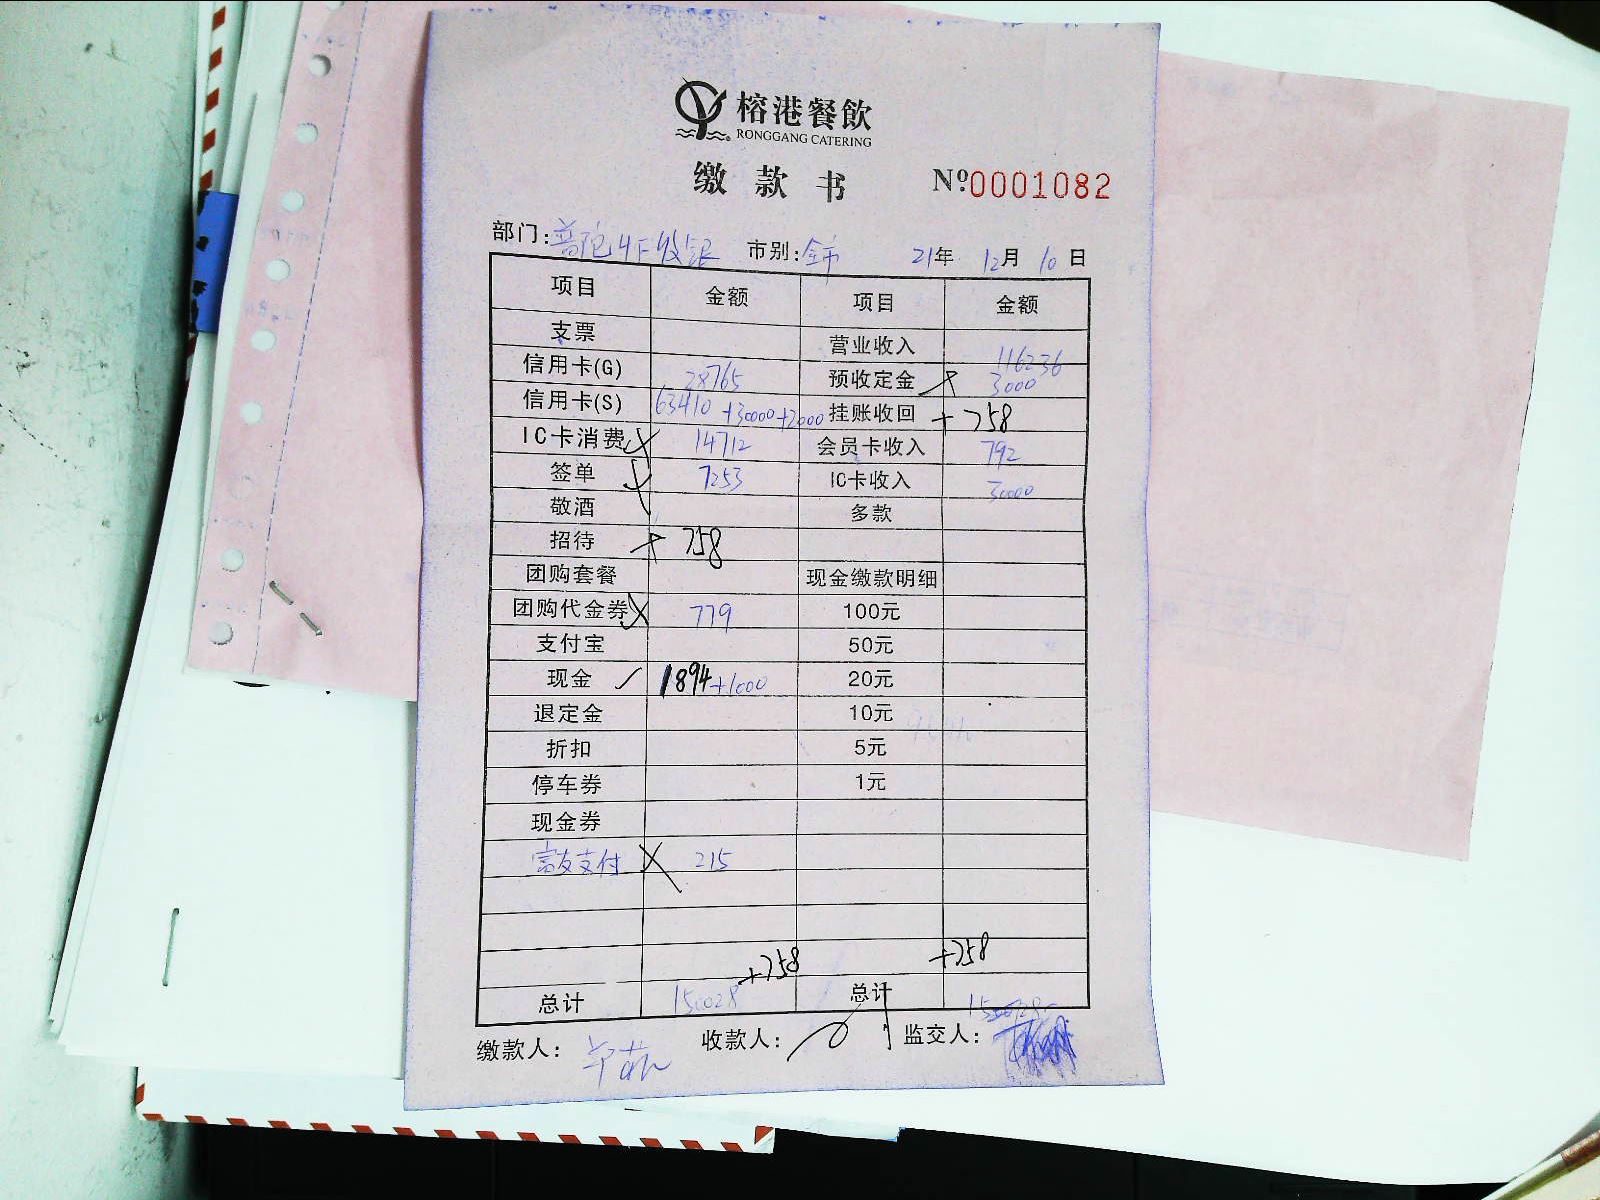 榕港餐飲
RONGGANG CATERING
缴款书 Nº 0001082
部门: 普陀4F收银 市别: 全市 21年 12月 10日
项目 金额 项目 金额
支票 营业收入 116236
信用卡(G) 28765 预收定金 3000
信用卡(S) 63410+30000+2000 挂账收回 +758
IC卡消费 14712 会员卡收入 792
签单 7253 IC卡收入 30000
敬酒 多款
招待 + 758
团购套餐 现金缴款明细
团购代金券 779 100元
支付宝 50元
现金 ✓ 1894+1000 20元
退定金 10元
折扣 5元
停车券 1元
现金券
富友支付 215
+758 +758
总计 150028 总计 150028
缴款人: 收款人: 监交人: